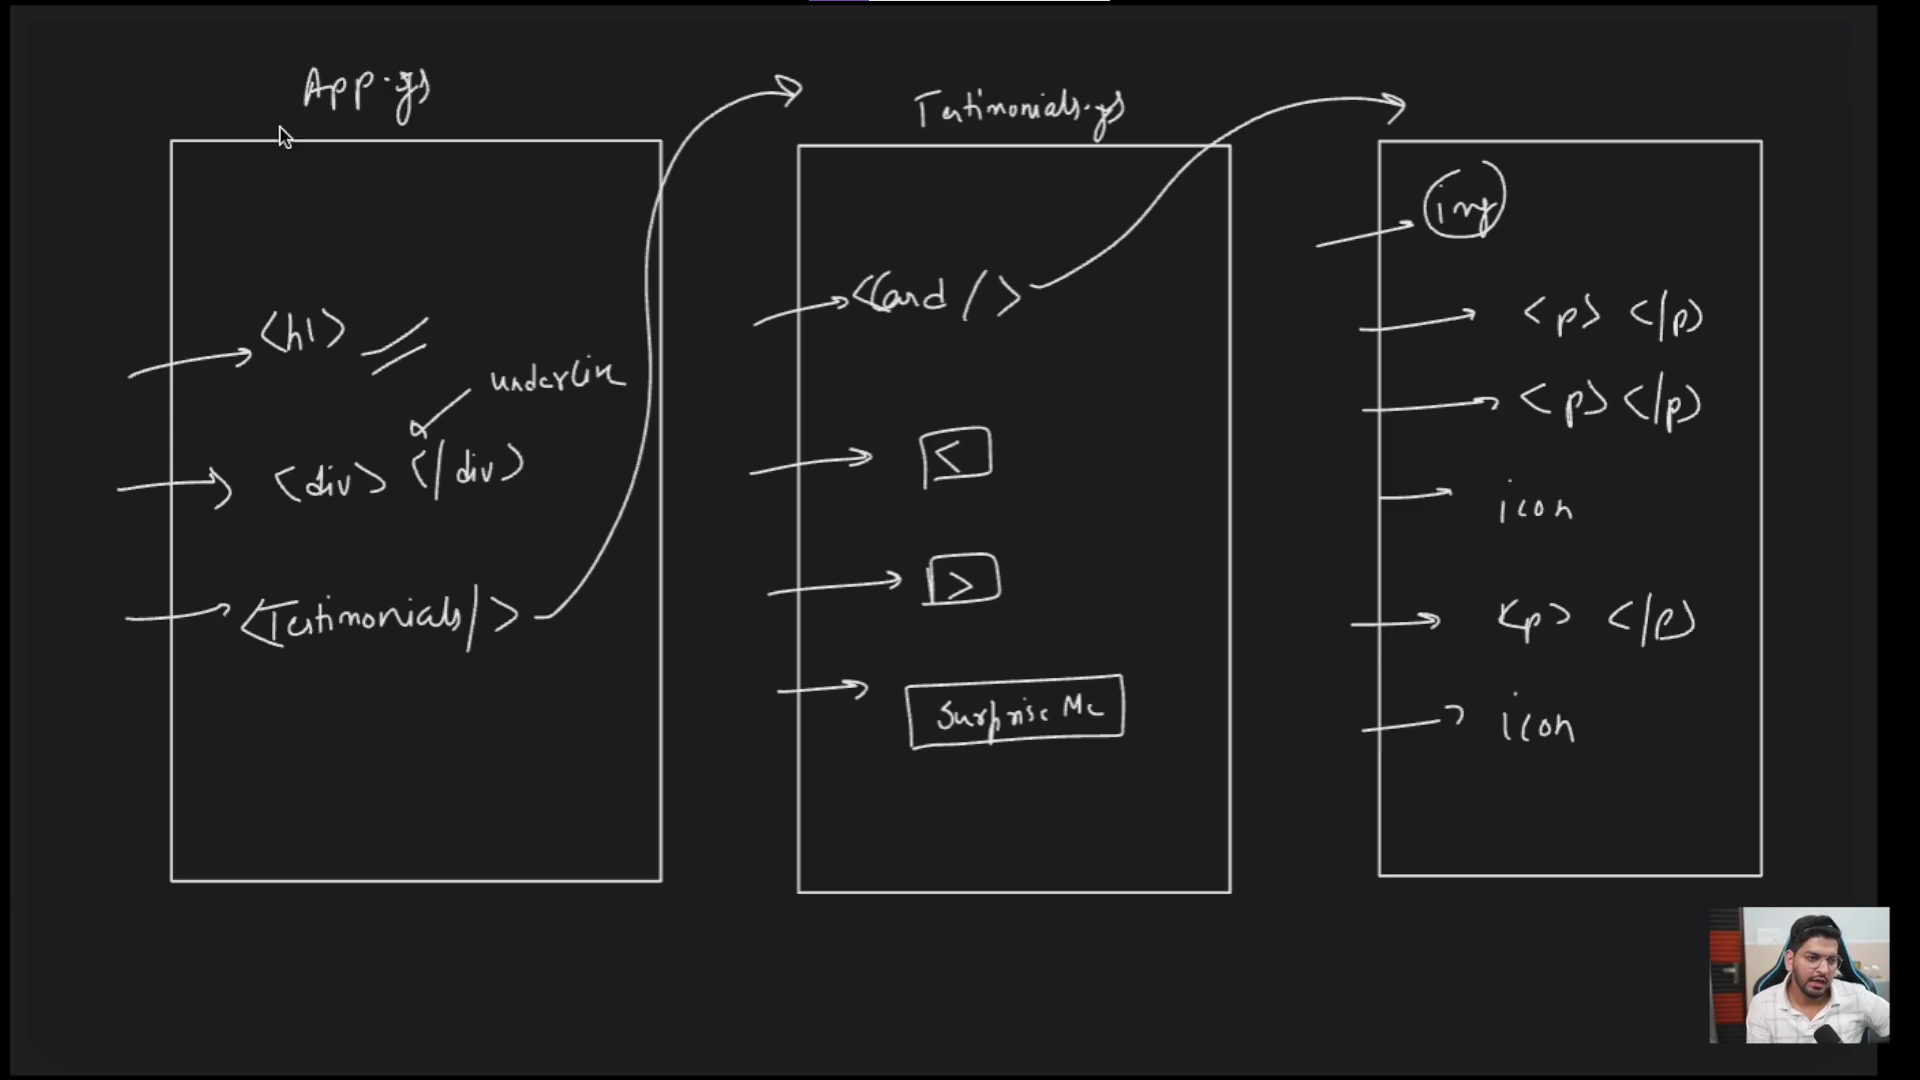 App.js
<h1>
underline
<div> </div>
<Testimonials/>
Testimonials.js
<Card/>
<
>
Surprise Me
img
<p> </p>
<p> </p>
icon
<p> </p>
icon